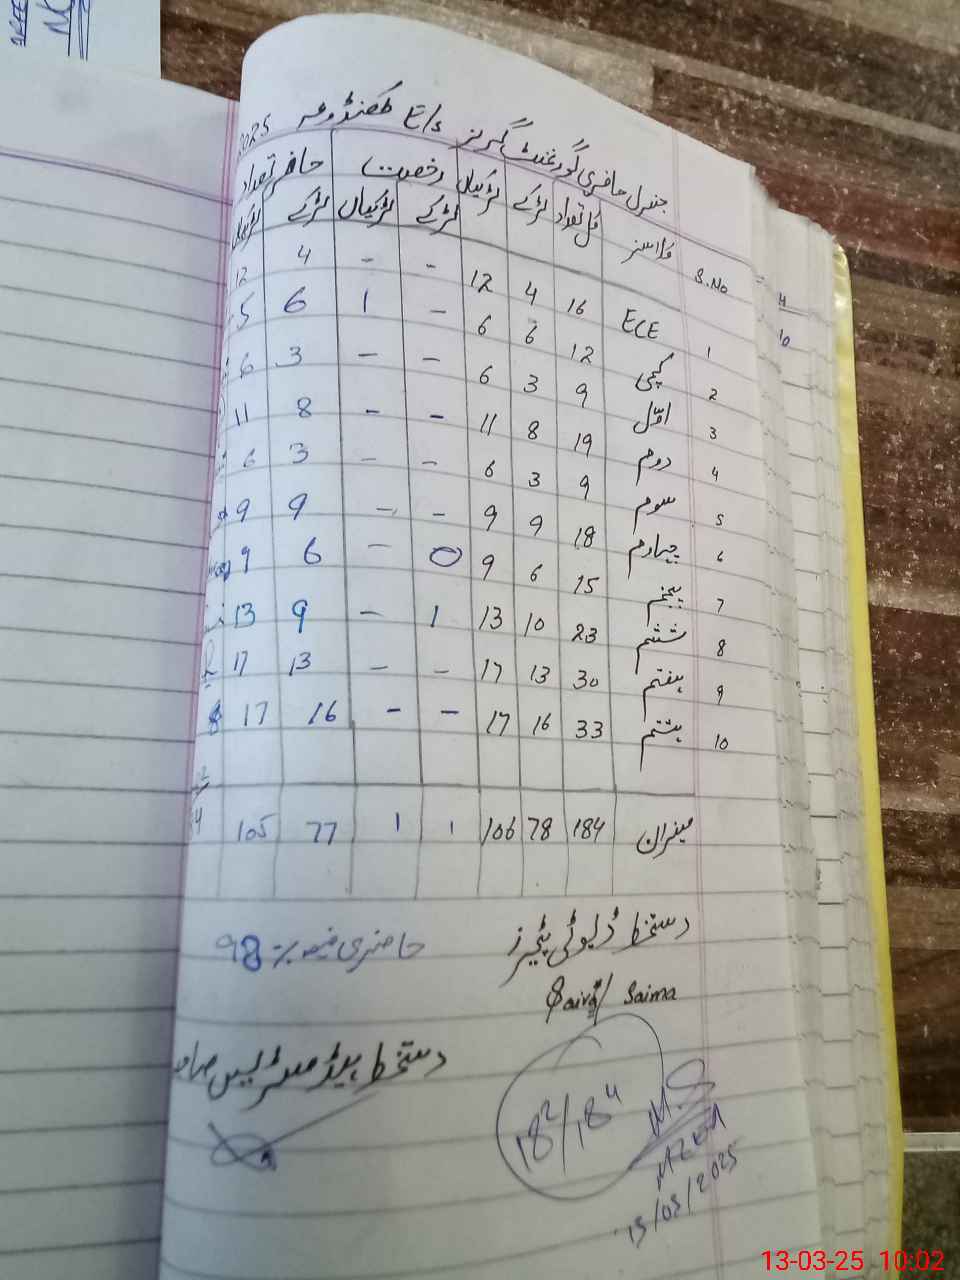 جنرل حاضری گورنمنٹ گرلز E/s کھنڈوعہ 2025
S.No کلاسز کل تعداد لڑکے لڑکیاں رخصت حاضر تعداد
لڑکے لڑکیاں لڑکے لڑکیاں
1 ECE 16 4 12 - - 4 12
2 کچی 12 6 6 - 1 6 5
3 اوّل 9 3 6 - - 3 6
4 دوم 19 8 11 - - 8 11
5 سوم 9 3 6 - - 3 6
6 چہارم 18 9 9 - - 9 9
7 پنجم 15 6 9 0 - 6 9
8 ششم 23 10 13 1 - 9 13
9 ہفتم 30 13 17 - - 13 17
10 ہشتم 33 16 17 - - 16 17
میزان 184 78 106 1 1 77 105
دستخط ڈیوٹی ٹیچرز
حاضری فیصد ٪ 98
Saira/ Saima
دستخط ہیڈ مسٹریس
182/184
13/03/2025
13-03-25 10:02